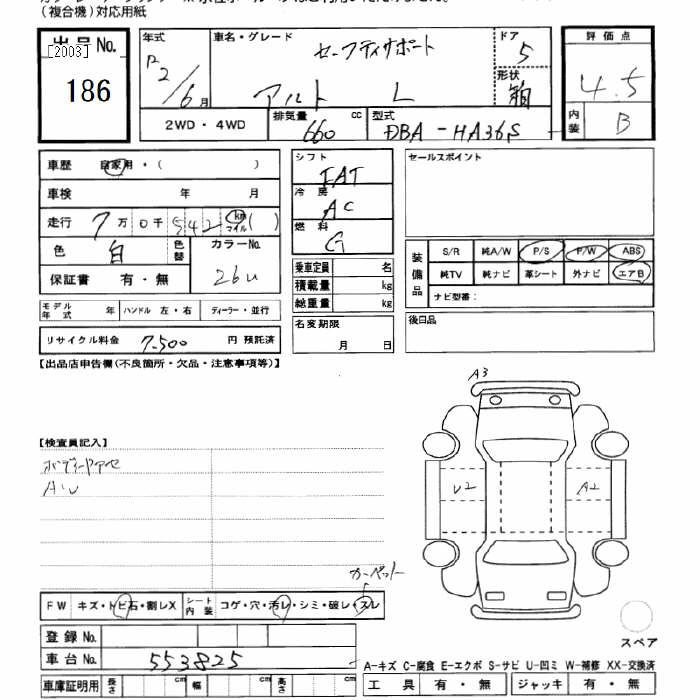 (複合機)対応用紙
出品No.
[2003]
186
年式
R2/6月
車名・グレード
セーフティサポート
アルト L
ドア
5
形状
箱
評価点
4.5
内装
B
2WD・4WD
排気量
660 cc
型式
DBA-HA36S
車歴 自家用・( )
車検 年 月
走行 7万0千542 km マイル ( )
色 白 色替
カラーNo.
26U
保証書 有・無
モデル年式 年 ハンドル 左・右 ディーラー・並行
リサイクル料金 7,500 円 預託済
シフト
IAT
冷房
AC
燃料
G
乗車定員 名
積載量 kg
総重量 kg
名変期限
月 日
セールスポイント
装備品
S/R 純A/W P/S P/W ABS
純TV 純ナビ 革シート 外ナビ エアB
ナビ型番:
後日品
【出品店申告欄(不良箇所・欠品・注意事項等)】
【検査員記入】
ボディーヤケセ
A・U
A3
U2
A2
カーペット
FW キズ・トビ石・割レX
シート内装 コゲ・穴・汚レ・シミ・破レ・スレ
登録No.
車台No. 553825
車庫証明用 長さ cm 幅 cm 高さ cm
スペア
A-キズ C-腐食 E-エクボ S-サビ U-凹ミ W-補修 XX-交換済
工具 有・無 ジャッキ 有・無